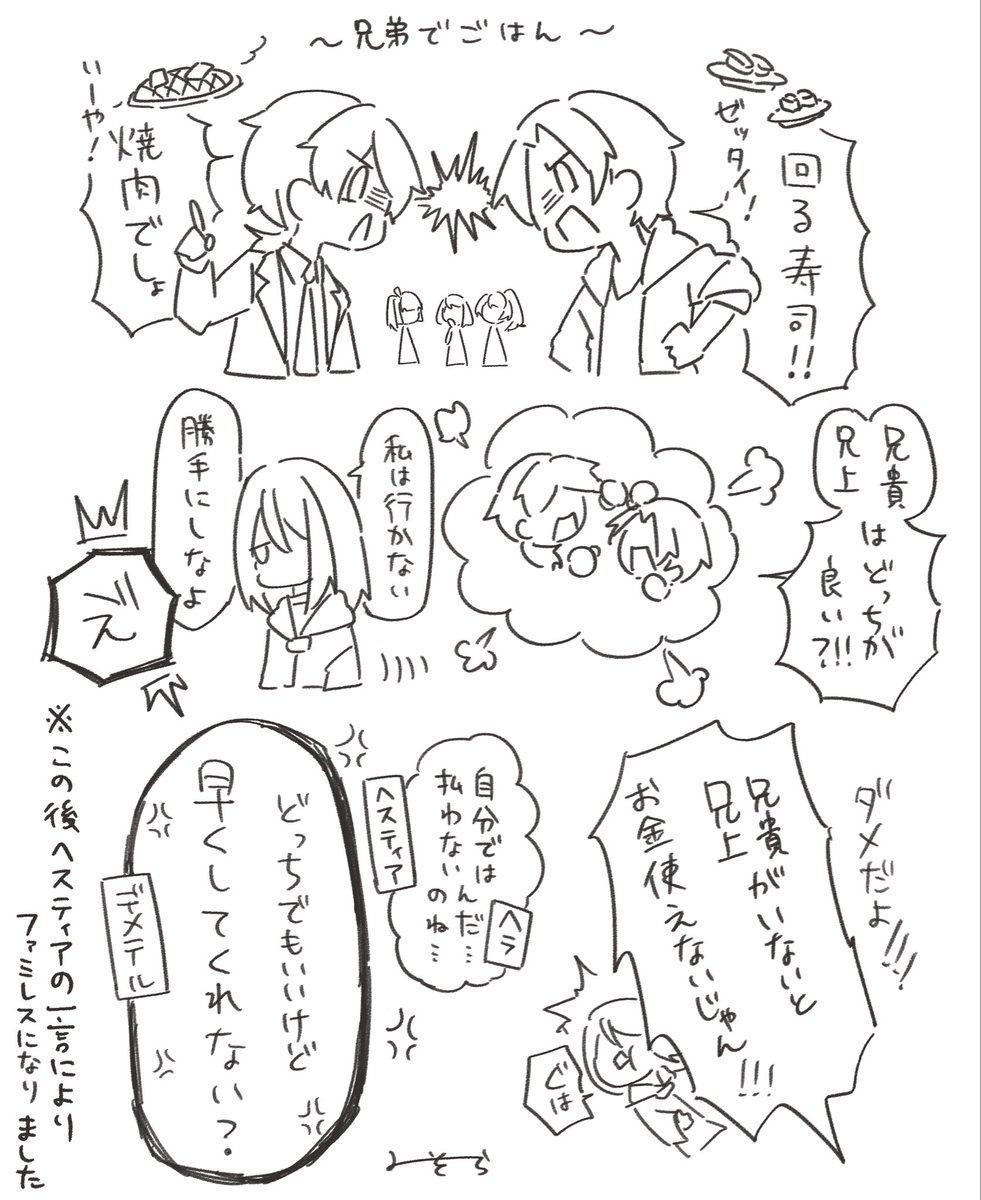 ～兄弟でごはん～
ゼッタイ！
回る寿司!!
いーや！
焼肉でしょ
兄貴
兄上
はどっちが
良い?!!
私は行かない
勝手にしなよ
ダメだよ!!!
兄貴
兄上
がいないと
お金使えないじゃん!!!
ぐは
自分では
払わないのね…
んだ…
ヘラ
ヘスティア
どっちでもいいけど
早くしてくれない？
デメテル
※この後ヘスティアの一言により
ファミレスになりました
みそら